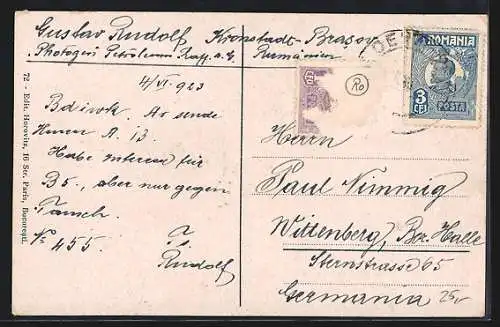 Gustav Rudolf Kronstadt-Brasov
Photogen Petroleum Raff. a. G. Rumänien
4/VI 923
sende
Habe Interesse für
B5, aber nur gegen
Tausch.
No 455
Rudolf
72 - Edit. Horovitz, 16 Str. Paris, București.
ROMANIA
3
LEI
POSTA
Ro
Herrn
Paul Nimmig
Wittenberg, Bez. Halle
Sternstrasse 65
Germania